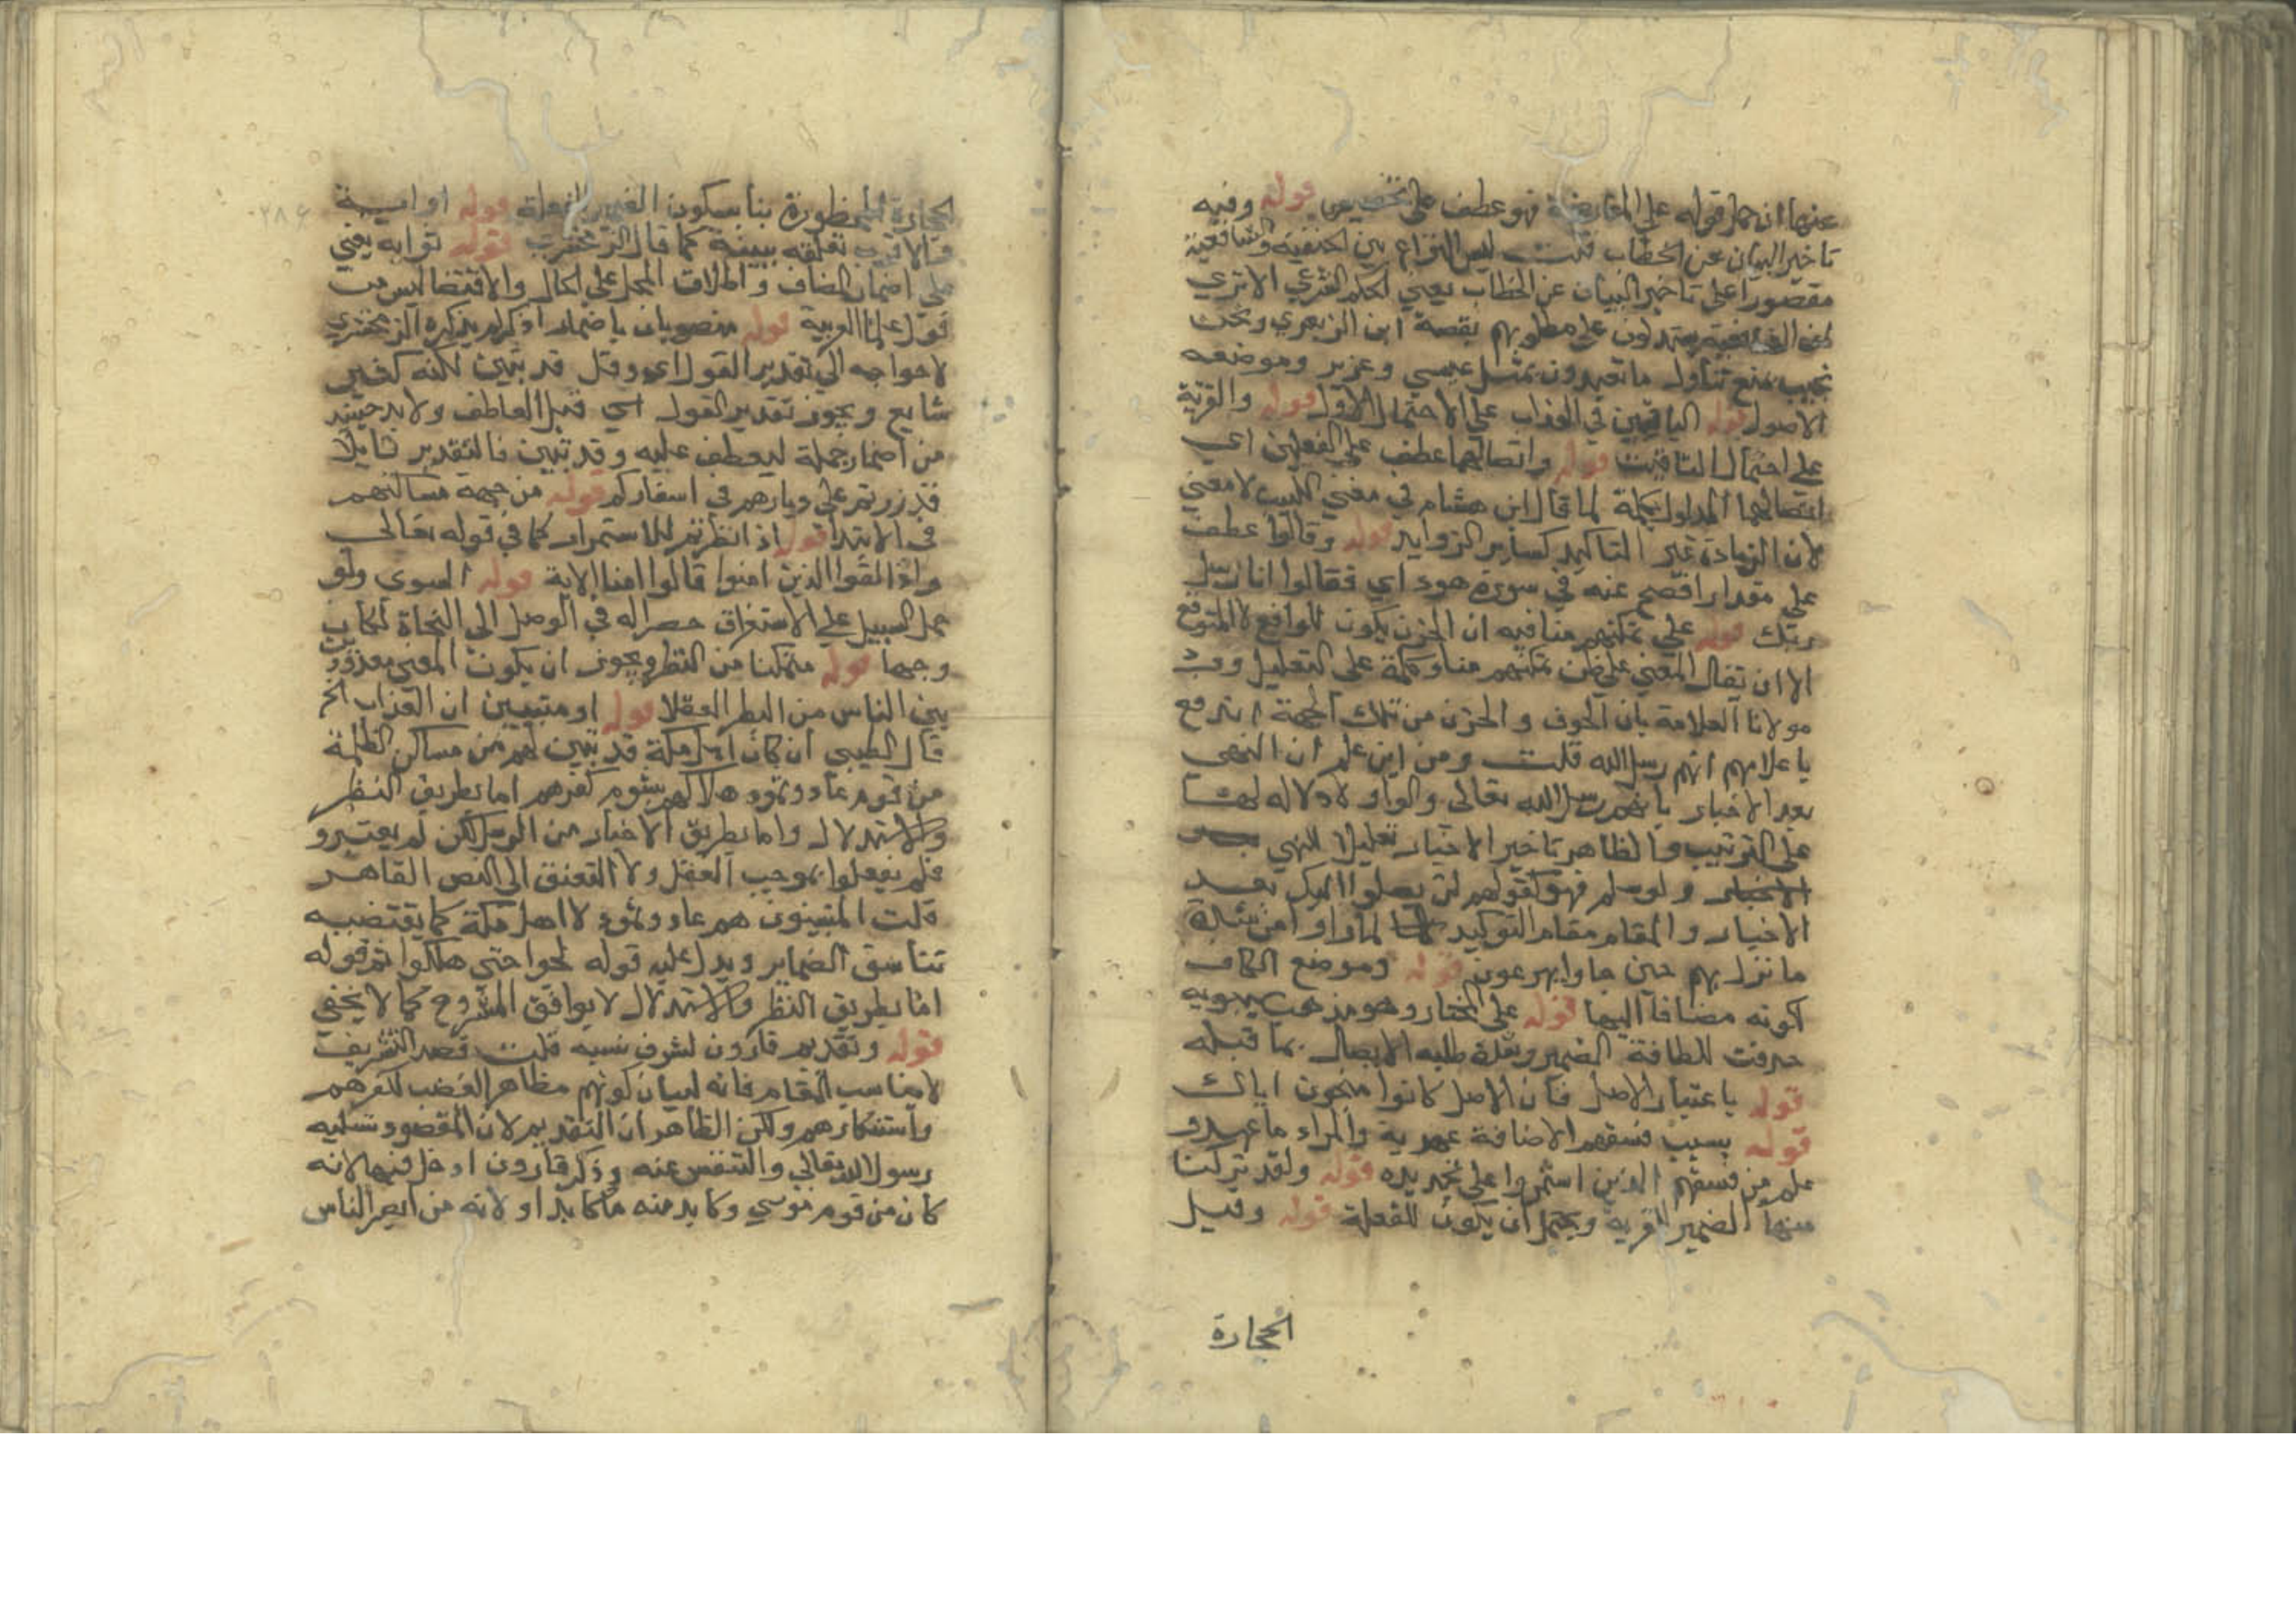 عنها ان حمل قوله على المعارضة فهو عطف على تخصيص قوله وفيه
تاخير البيان عن الخطاب قلت ليس النزاع بين الحنفية والشافعية
مقصورا على تاخير البيان عن الخطاب يعني الحكم الشرعي الا تري
يستدلون على مطلوبهم بقصة ابن الزبعري ونحن
نجيب بمنع تناول ما تعبدون بمثل عيسي وعزير وموضعه
الاصول قوله الباقين في العذاب على الاحتمال الاول قوله والقرية
على احتمال الثاني قوله واتصالهما عطف على الفعلين اي
اتصالهما المدلول بكلمة لما قال ابن هشام في مغني اللبيب لا معني
لان الزيادة غير التاكيد كساير الزوايد قوله وقالوا عطف
على مقدار افصح عنه في سورة هود اي فقالوا انا رسل
ربك قوله على تمكنهم منا فيه ان الحزن يكون للواقع لا المتوقع
الا ان يقال المعني على ظن تمكنهم منا وكلمة على للتعليل
مولانا العلامة بان الخوف والحزن من تلك الجهة اندفع
باعلامهم انهم رسل الله قلت ومن اين علم ان النهي
بعد الاخبار بانهم رسل الله تعالى والواو لا دلالة لها
على الترتيب والظاهر تاخير الاخبار تعليلا للنهي
الاخبار ولو سلم فهو كقولهم لن يصلوا اليك بعد
الاخبار والمقام مقام التوكيد لما راوا من شدة
ما نزل بهم حين جاوا يهرعون قوله وموضع الكاف
لكونه مضافا اليها قوله على المختار وهو مذهب سيبويه
حذفت للطافة الضمير وشدة طلبه الاتصال بما قبله
قوله باعتبار الاصل فان الاصل كانوا منجون اياك
قوله بسبب فسقهم الاضافة عهدية والمراد ما عهد
علم من فسقهم الذين استمروا على تجديده قوله ولقد تركنا
منها الضمير للقرية ويحتمل ان يكون للفعلة قوله وقيل
الحجارة
الحجارة الممطورة بنا سكون الضمير للفعلة قوله او اية
والاقرب تعلقه ببينة كما قال الزمخشري قوله ثوابه يعني
على اضمار المضاف واطلاق المحل على الحال والاقتضا ليس من
قول علما العربية قوله منصوبان باضمار اذكر لم يذكره الزمخشري
لاحواجه الى تقدير القول اي وقل قد تبين لكنه كثير
شايع ويجوز تقدير القول اي قبل العاطف ولا بد حينئذ
من اضمار جملة ليعطف عليه وقد تبين فالتقدير قايلا
قد زرتم على ديارهم في اسفاركم قوله من جهة مساكنهم
في الابتدا قوله اذ انظرتم للاستمرار كما في قوله تعالى
واذا لقوا الذين امنوا قالوا امنا الاية قوله السوي ولو
حمل السبيل على الاستغراق حصرا له في الموصل الى النجاة لكان
وجها قوله متمكنا من النظر ويجوز ان يكون المعني معدودين
بين الناس من النظر العقلا قوله او متبينين ان العذاب الخ
قال الطيبي ان كان اهل مكة قد تبين لهم من مساكن الظلمة
من قوم عاد وثمود هلاكهم بشوم كفرهم اما بطريق النظر
والاستدلال واما بطريق الاخبار من الرسل لكن لم يعتبرو
فلم يفعلوا بموجب العقل ولا التفتق الى النص القاهر
قلت المتبينون هم عاد وثمود لا اهل مكة كما يقتضيه
تناسق الضماير ويدل عليه قوله لجوا حتى هلكوا ثم قوله
اما بطريق النظر والاستدلال لا يوافق المشروح كما لا يخفي
قوله وتقديم قارون لشرف نسبه قلت قصد التشريف
لا يناسب المقام فانه لبيان كونهم مظاهر الغضب لكفرهم
واستنكارهم ولكن الظاهر ان التقديم لان المقصود تسليه
رسول الله تعالي والتنفيس عنه وذكر قارون ادخل فيها لانه
كان من قوم موسي وكابد منه ما كابد او لانه من ابصر الناس